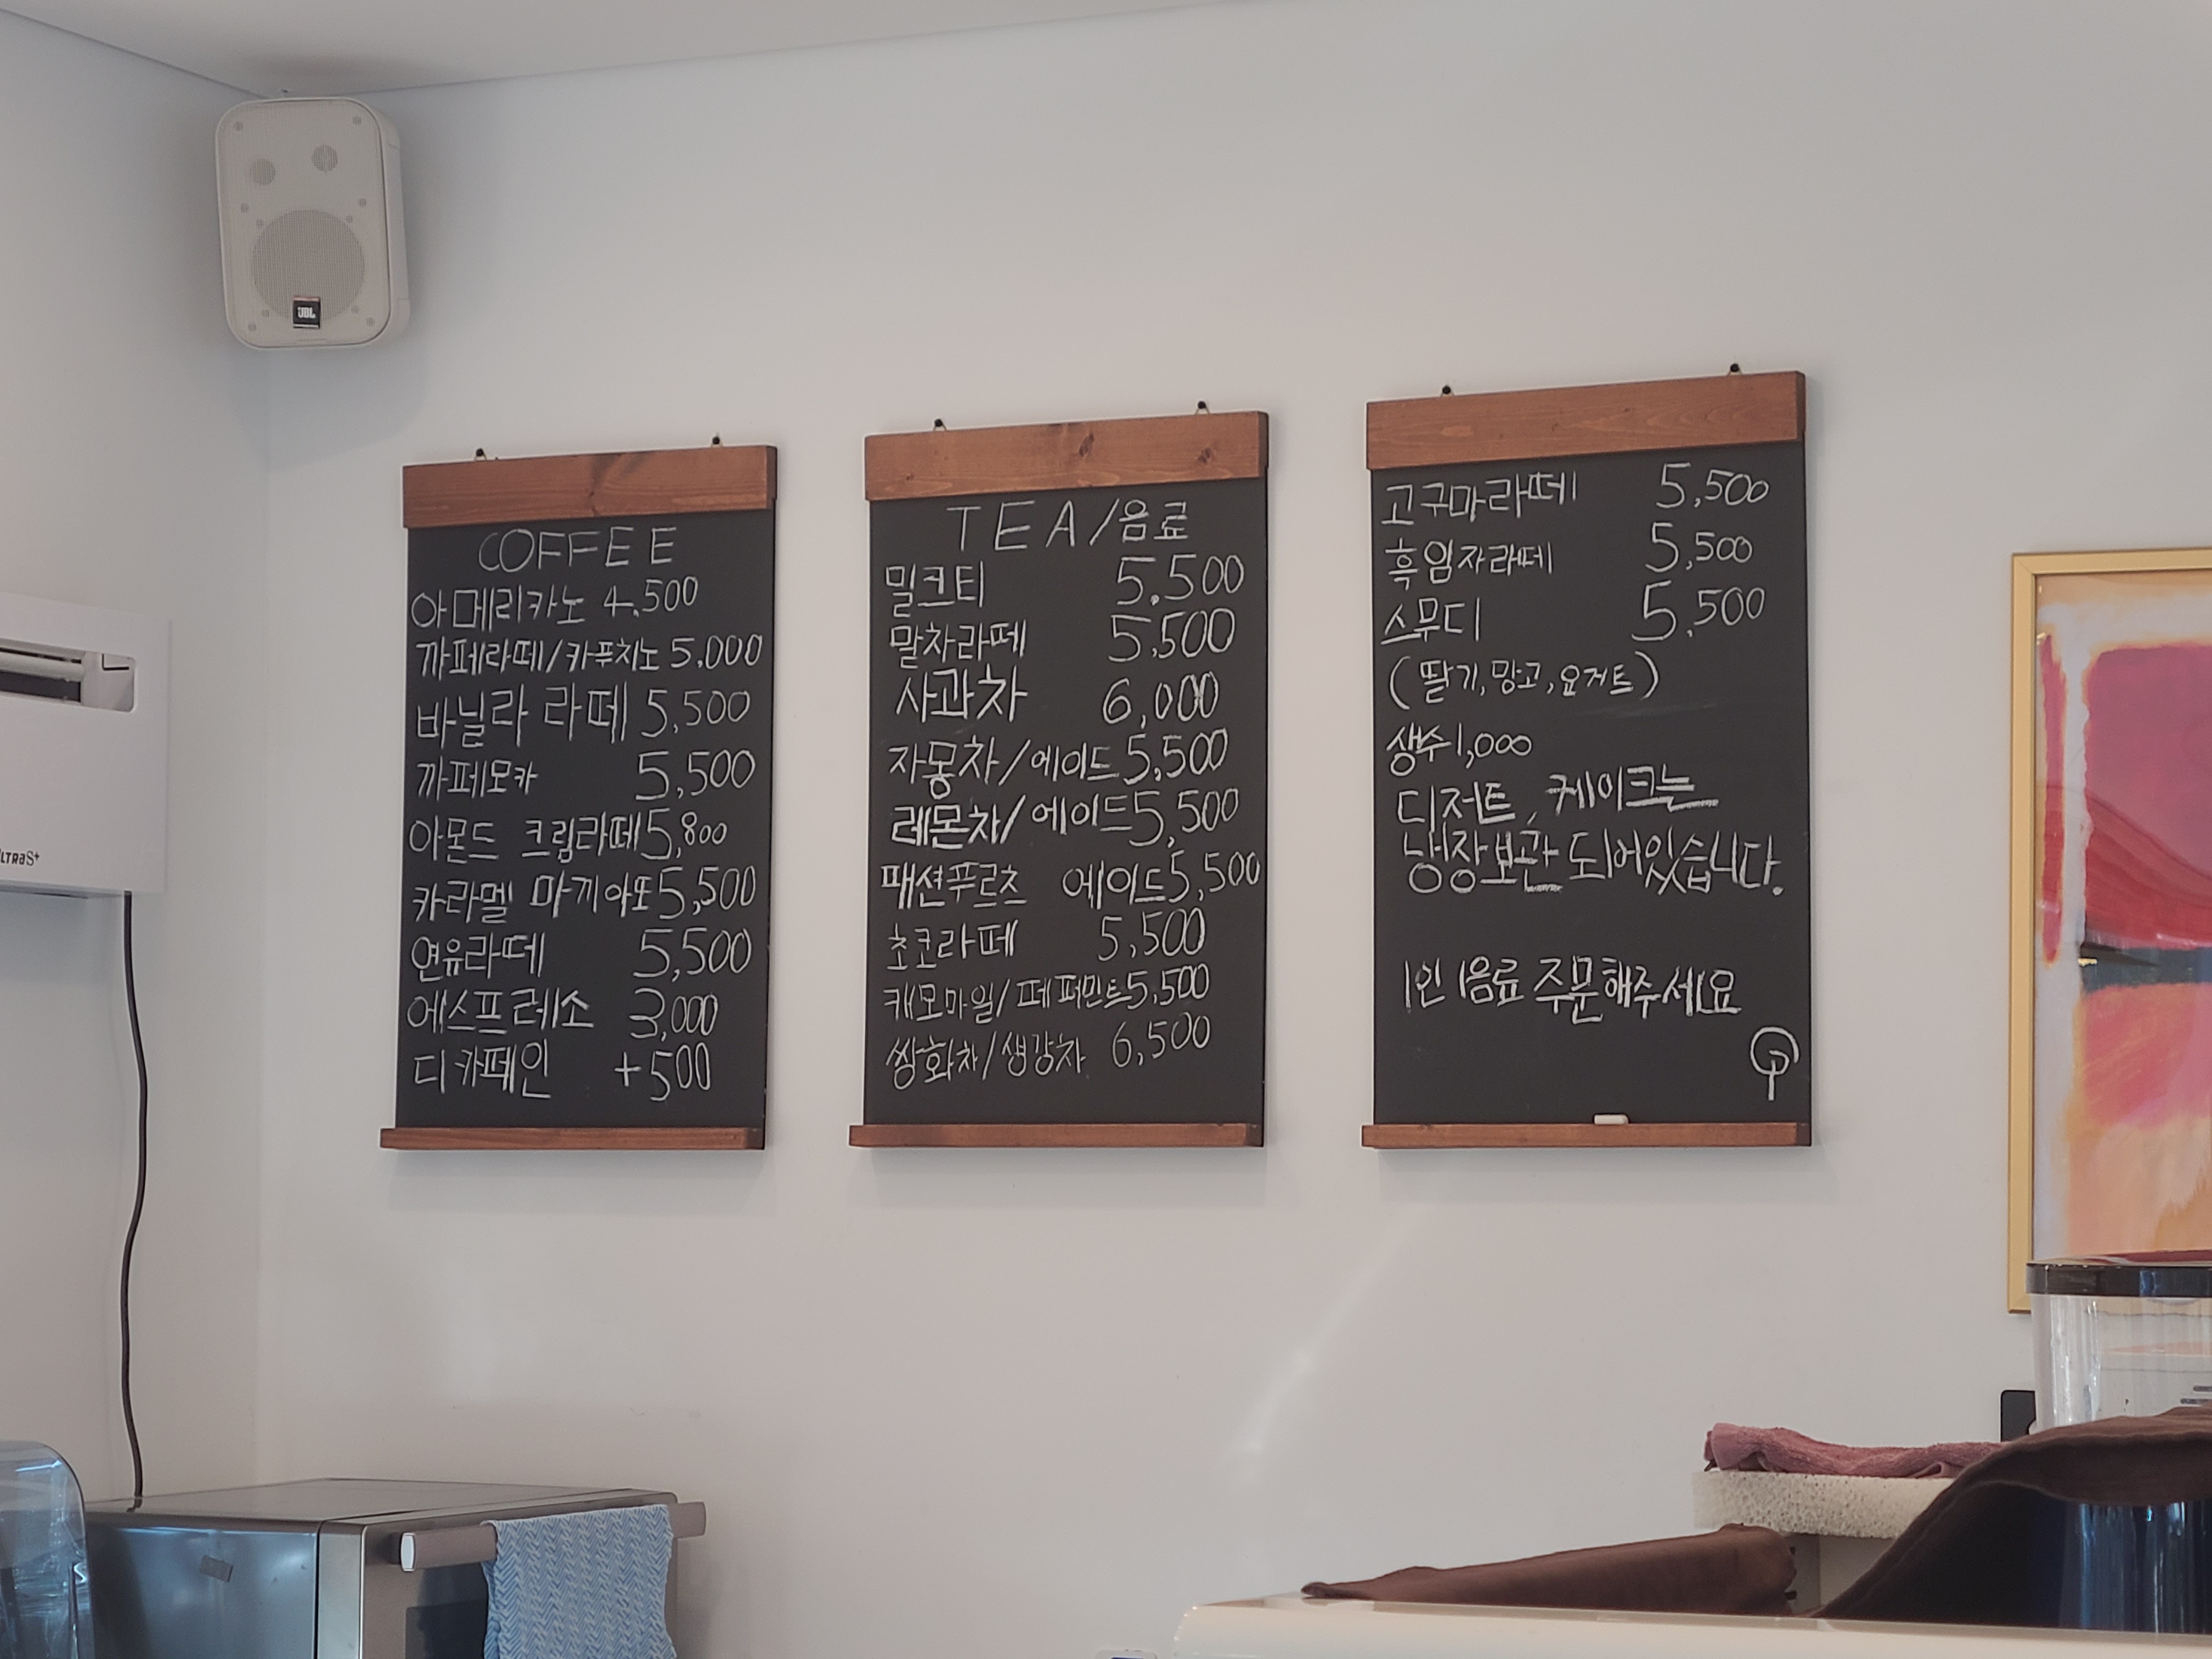 JBL
LTRaS+
COFFEE
아메리카노 4,500
까페라떼/카푸치노 5,000
바닐라 라떼 5,500
까페모카 5,500
아몬드 크림라떼 5,800
카라멜 마끼아또 5,500
연유라떼 5,500
에스프레소 3,000
디카페인 +500
TEA/음료
밀크티 5,500
말차라떼 5,500
사과차 6,000
자몽차/에이드 5,500
레몬차/에이드 5,500
패션푸르츠 에이드 5,500
초코라떼 5,500
캐모마일/페퍼민트 5,500
쌍화차/생강차 6,500
고구마라떼 5,500
흑임자라떼 5,500
스무디 5,500
(딸기, 망고, 요거트)
생수 1,000
디저트, 케이크는
냉장보관 되어있습니다.
1인 1음료 주문해주세요